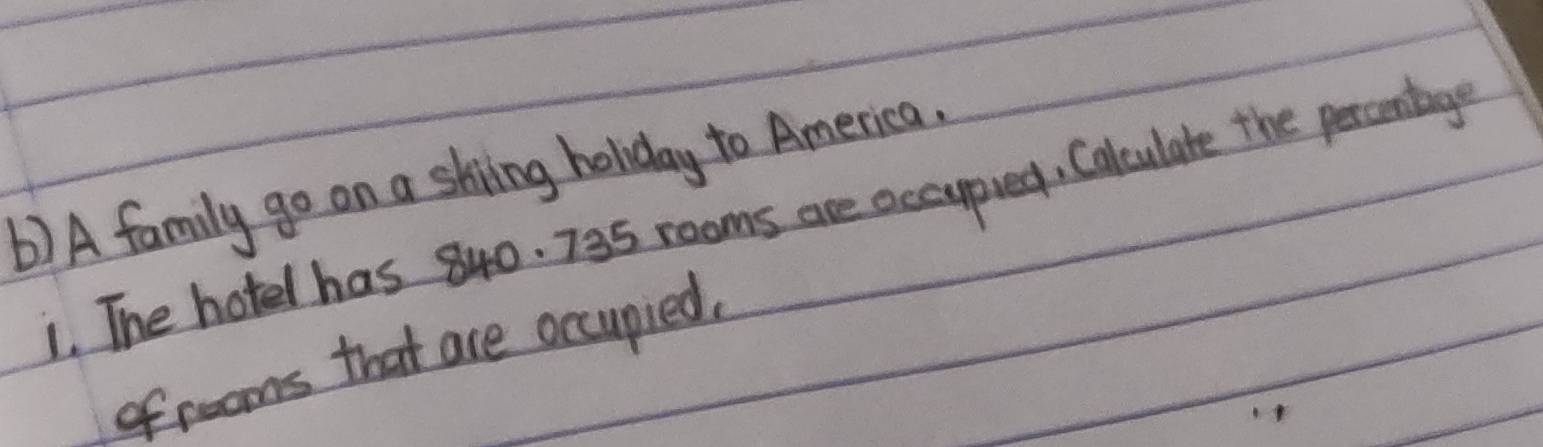 b) A family go on a skiing holiday to America.
i. The hotel has 840. 735 rooms are occupied. Calculate the percentage
of rooms that are occupied.